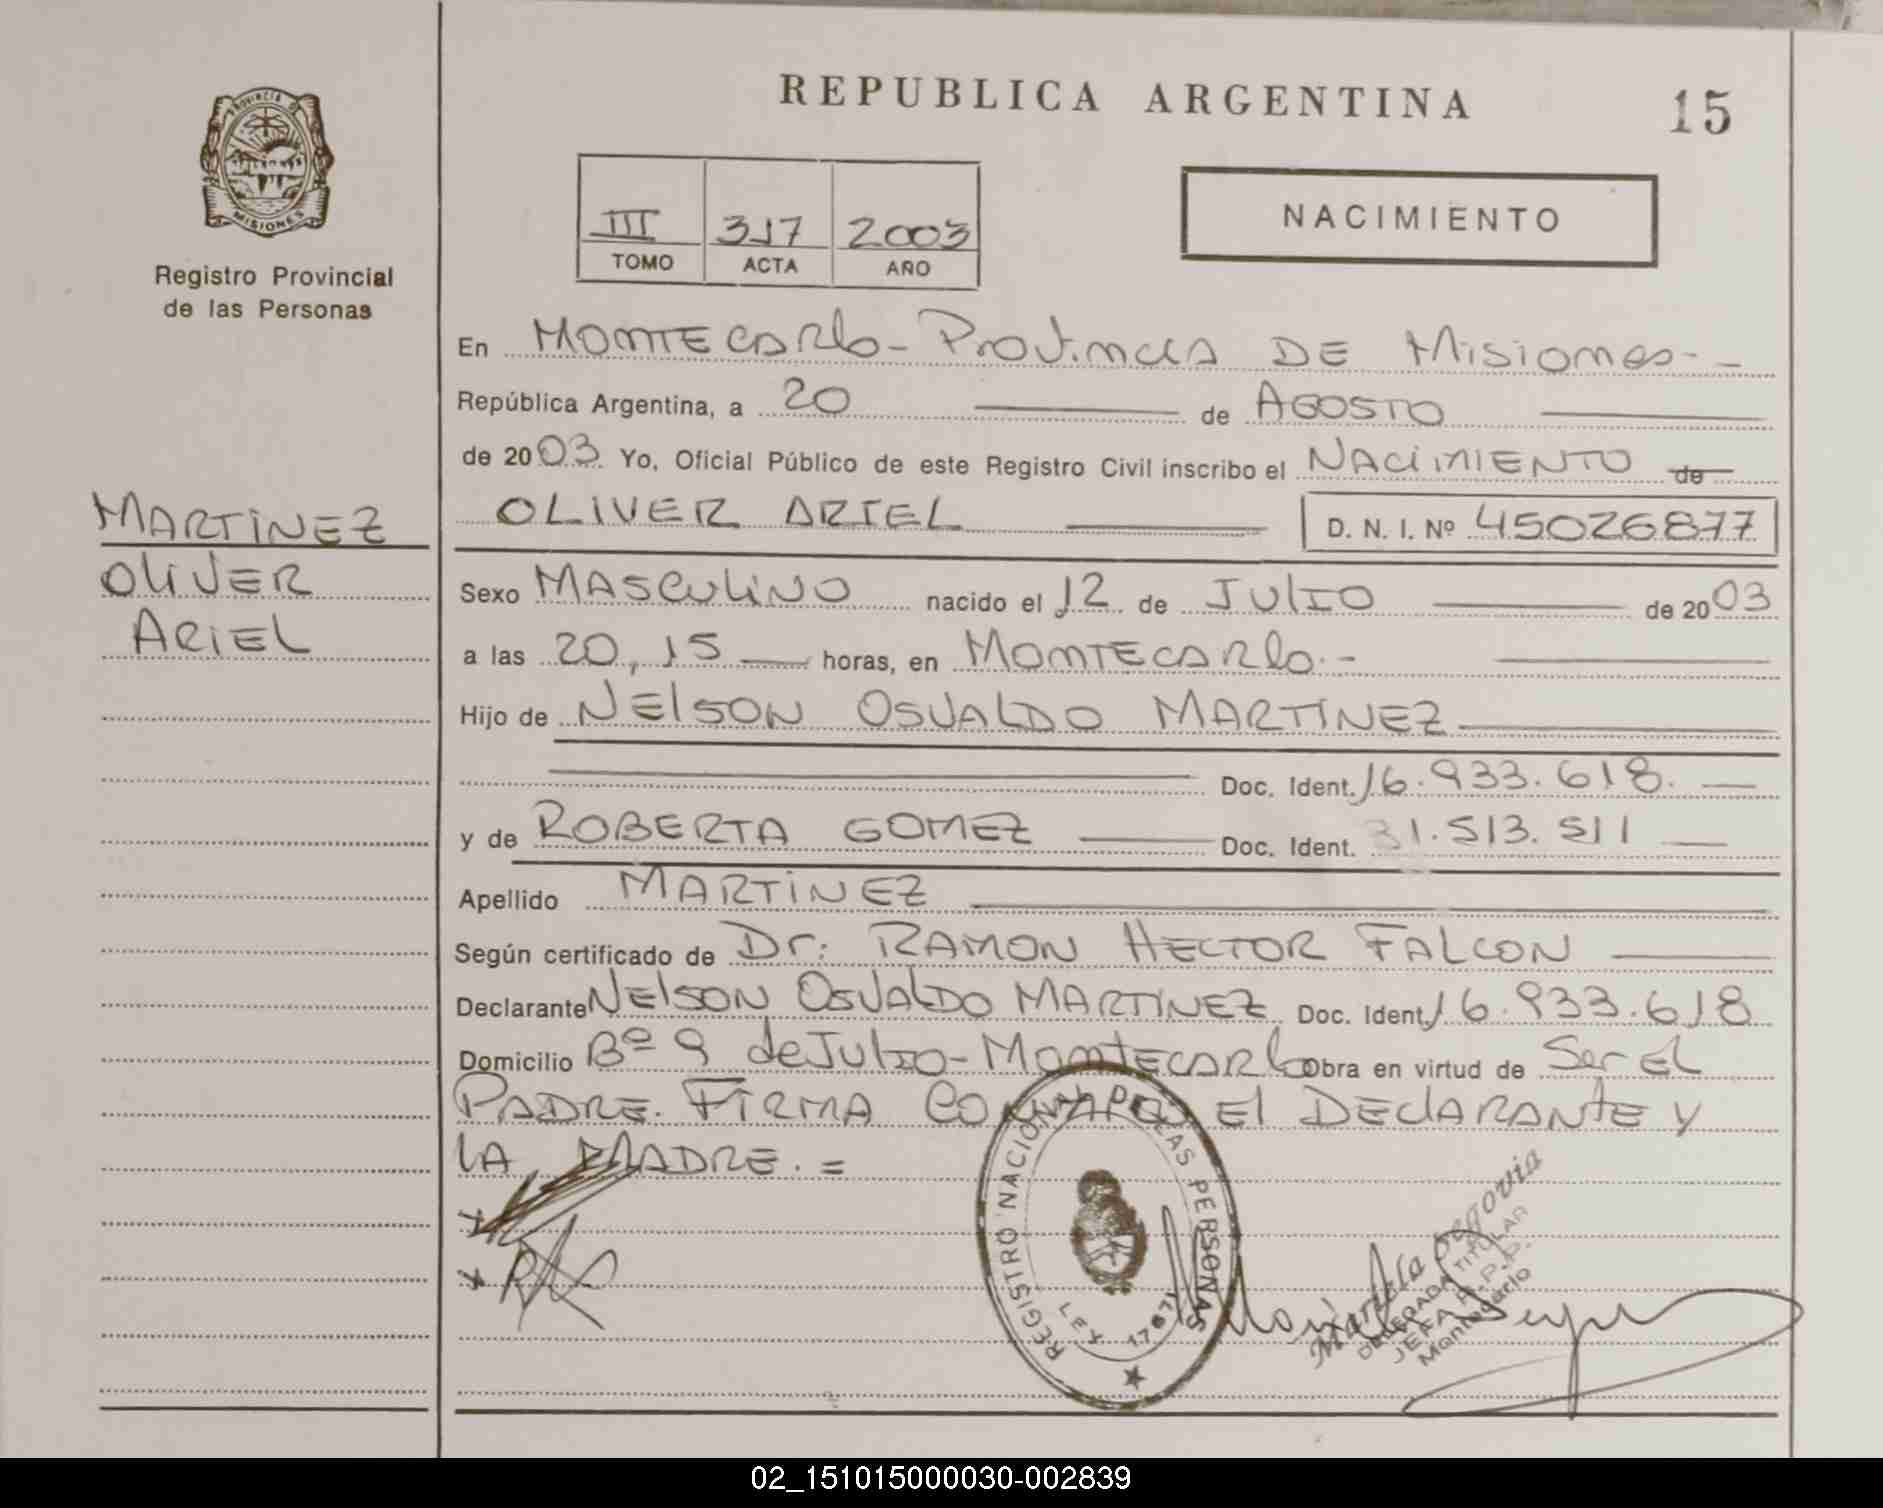 REPUBLICA ARGENTINA
15
PROVINCIA DE
MISIONES
Registro Provincial
de las Personas
III 317 2003
TOMO ACTA AÑO
NACIMIENTO
En MONTECARLO - PROVINCIA DE MISIONES.-
República Argentina, a 20 de AGOSTO
de 2003. Yo, Oficial Público de este Registro Civil inscribo el NACIMIENTO de
OLIVER ARIEL D. N. I. Nº 45026877
MARTINEZ
OLIVER
ARIEL
Sexo MASCULINO nacido el 12 de JULIO de 2003
a las 20,15 horas, en MONTECARLO.-
Hijo de NELSON OSVALDO MARTINEZ
Doc. Ident. 16.933.618.
y de ROBERTA GOMEZ Doc. Ident. 31.513.511
Apellido MARTINEZ
Según certificado de Dr: RAMON HECTOR FALCON
Declarante NELSON OSVALDO MARTINEZ Doc. Ident. 16.933.618
Domicilio Bº 9 de JULIO - MONTECARLO Obra en virtud de SER EL
PADRE. FIRMA CON EL DECLARANTE Y
LA MADRE. =
REGISTRO NACIONAL DE LAS PERSONAS
LEY 17671
Mariela Segovia
DELEGADA TITULAR
JEFA R.P.P.
Montecarlo
02_151015000030-002839